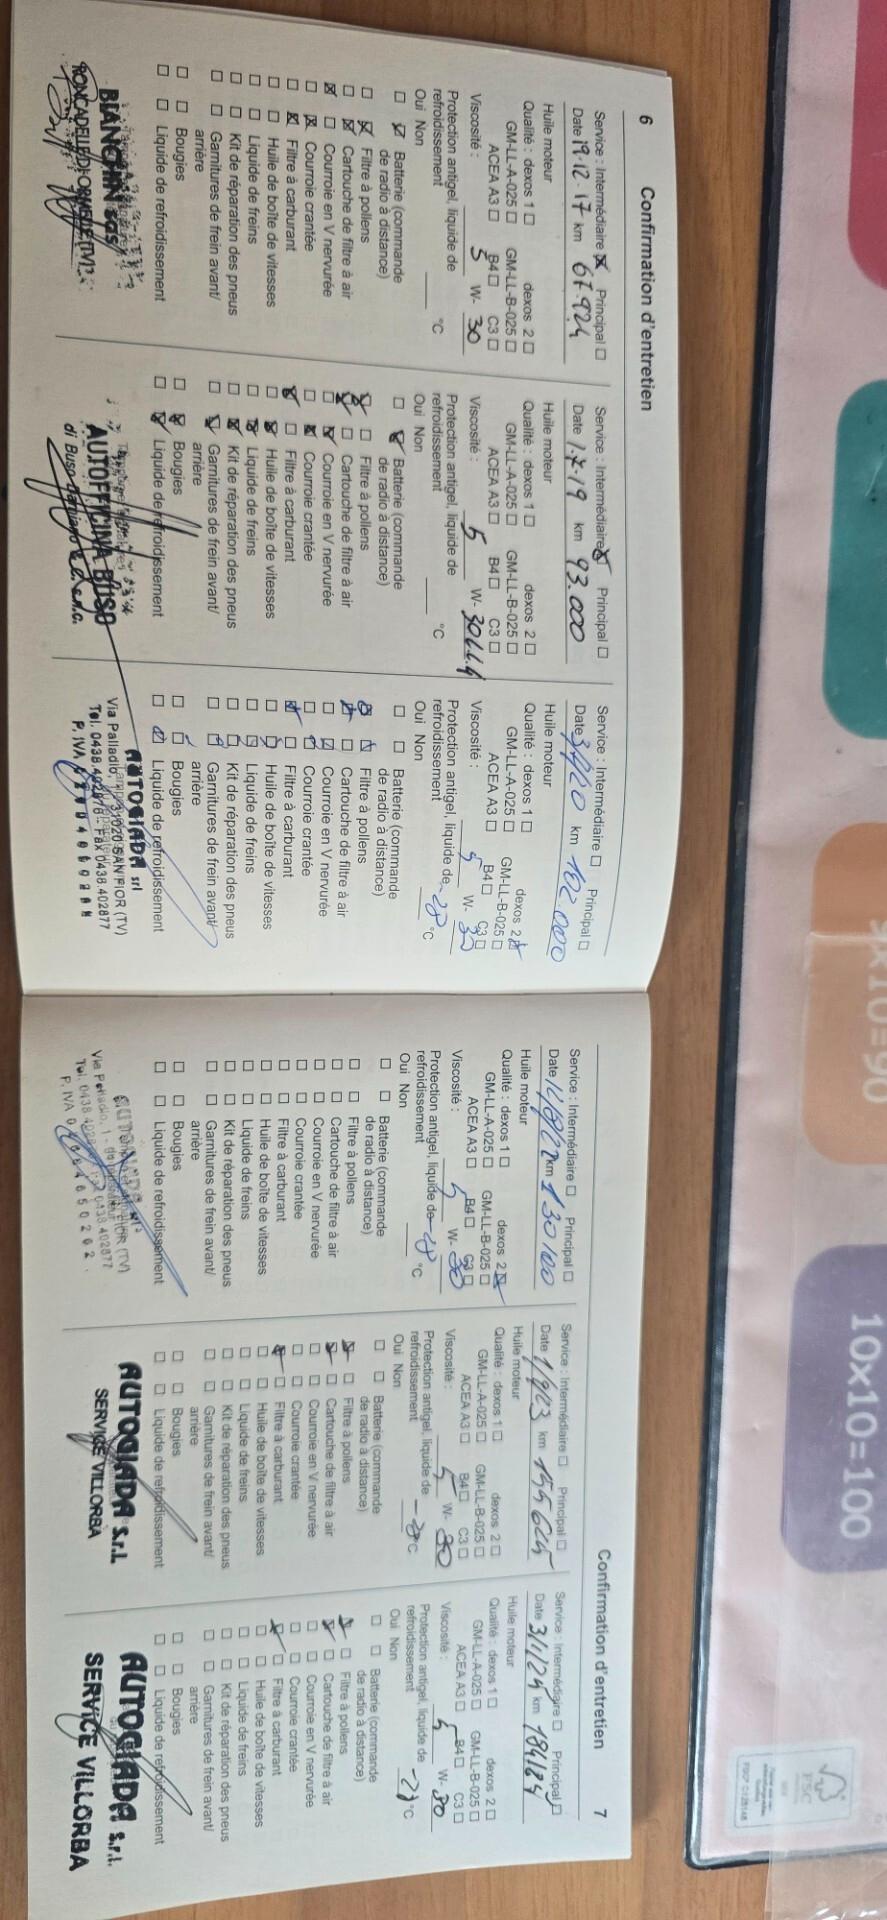 6 Confirmation d'entretien
Service : Intermédiaire ☒ Principal ☐
Date 19.12.17 km 67.924
Huile moteur
Qualité : dexos 1 ☐ dexos 2 ☐
GM-LL-A-025 ☐ GM-LL-B-025 ☐
ACEA A3 ☐ B4 ☐ C3 ☐
Viscosité : 5 W- 30
Protection antigel, liquide de
refroidissement °C
Oui Non
☐ ☒ Batterie (commande
de radio à distance)
☐ ☒ Filtre à pollens
☐ ☒ Cartouche de filtre à air
☒ ☐ Courroie en V nervurée
☐ ☒ Courroie crantée
☐ ☒ Filtre à carburant
☐ ☐ Huile de boîte de vitesses
☐ ☐ Liquide de freins
☐ ☐ Kit de réparation des pneus
☐ ☐ Garnitures de frein avant/
arrière
☐ ☐ Bougies
☐ ☐ Liquide de refroidissement
BIANCHIN sas
Service : Intermédiaire ☒ Principal ☐
Date 1.7.19 km 93.000
Huile moteur
Qualité : dexos 1 ☐ dexos 2 ☐
GM-LL-A-025 ☐ GM-LL-B-025 ☐
ACEA A3 ☐ B4 ☐ C3 ☐
Viscosité : 5 W- 30
Protection antigel, liquide de
refroidissement °C
Oui Non
☐ ☒ Batterie (commande
de radio à distance)
☒ ☐ Filtre à pollens
☒ ☐ Cartouche de filtre à air
☐ ☒ Courroie en V nervurée
☐ ☒ Courroie crantée
☒ ☐ Filtre à carburant
☐ ☒ Huile de boîte de vitesses
☐ ☒ Liquide de freins
☐ ☒ Kit de réparation des pneus
☐ ☒ Garnitures de frein avant/
arrière
☐ ☒ Bougies
☐ ☒ Liquide de refroidissement
AUTOFFICINA BUSO
di Buso
Service : Intermédiaire ☐ Principal ☐
Date km 102.000
Huile moteur
Qualité : dexos 1 ☐ dexos 2 ☒
GM-LL-A-025 ☐ GM-LL-B-025 ☐
ACEA A3 ☐ B4 ☐ C3 ☐
Viscosité : 5 W- 30
Protection antigel, liquide de
refroidissement -28 °C
Oui Non
☐ ☐ Batterie (commande
de radio à distance)
Filtre à pollens
Cartouche de filtre à air
Courroie en V nervurée
Courroie crantée
Filtre à carburant
Huile de boîte de vitesses
Liquide de freins
Kit de réparation des pneus
Garnitures de frein avant/
arrière
Bougies
Liquide de refroidissement
AUTOGIADA srl
Via Palladio, 1 31020 SAN FIOR (TV)
Tel. 0438.402876 - Fax 0438.402877
P. IVA
Confirmation d'entretien 7
Service : Intermédiaire ☐ Principal ☐
Date km 130100
Huile moteur
Qualité : dexos 1 ☐ dexos 2 ☒
GM-LL-A-025 ☐ GM-LL-B-025 ☐
ACEA A3 ☐ B4 ☐ C3 ☐
Viscosité : 5 W- 30
Protection antigel, liquide de
refroidissement -28 °C
Oui Non
☐ ☐ Batterie (commande
de radio à distance)
☐ ☐ Filtre à pollens
☐ ☐ Cartouche de filtre à air
☐ ☐ Courroie en V nervurée
☐ ☐ Courroie crantée
☐ ☐ Filtre à carburant
☐ ☐ Huile de boîte de vitesses
☐ ☐ Liquide de freins
☐ ☐ Kit de réparation des pneus
☐ ☐ Garnitures de frein avant/
arrière
☐ ☐ Bougies
☐ ☐ Liquide de refroidissement
Via Palladio, 1
Tel. 0438 0438.402877
P. IVA
Service : Intermédiaire ☐ Principal ☐
Date km 155625
Huile moteur
Qualité : dexos 1 ☐ dexos 2 ☐
GM-LL-A-025 ☐ GM-LL-B-025 ☐
ACEA A3 ☐ B4 ☐ C3 ☐
Viscosité : 5 W- 30
Protection antigel, liquide de
refroidissement °C
Oui Non
☐ ☐ Batterie (commande
de radio à distance)
☒ ☐ Filtre à pollens
☒ ☐ Cartouche de filtre à air
☐ ☐ Courroie en V nervurée
☐ ☐ Courroie crantée
☒ ☐ Filtre à carburant
☐ ☐ Huile de boîte de vitesses
☐ ☐ Liquide de freins
☐ ☐ Kit de réparation des pneus
☐ ☐ Garnitures de frein avant/
arrière
☐ ☐ Bougies
☐ ☐ Liquide de refroidissement
AUTOGIADA S.r.l.
SERVICE VILLORBA
Service : Intermédiaire ☐ Principal ☐
Date 3/1/24 km 184184
Huile moteur
Qualité : dexos 1 ☐ dexos 2 ☐
GM-LL-A-025 ☐ GM-LL-B-025 ☐
ACEA A3 ☐ B4 ☐ C3 ☐
Viscosité : 5 W- 30
Protection antigel, liquide de
refroidissement °C
Oui Non
☐ ☐ Batterie (commande
de radio à distance)
☒ ☐ Filtre à pollens
☒ ☐ Cartouche de filtre à air
☐ ☐ Courroie en V nervurée
☐ ☐ Courroie crantée
☒ ☐ Filtre à carburant
☐ ☐ Huile de boîte de vitesses
☐ ☐ Liquide de freins
☐ ☐ Kit de réparation des pneus
☐ ☐ Garnitures de frein avant/
arrière
☐ ☐ Bougies
☐ ☐ Liquide de refroidissement
AUTOGIADA S.r.l.
SERVICE VILLORBA
9x10=90
10x10=100
FSC